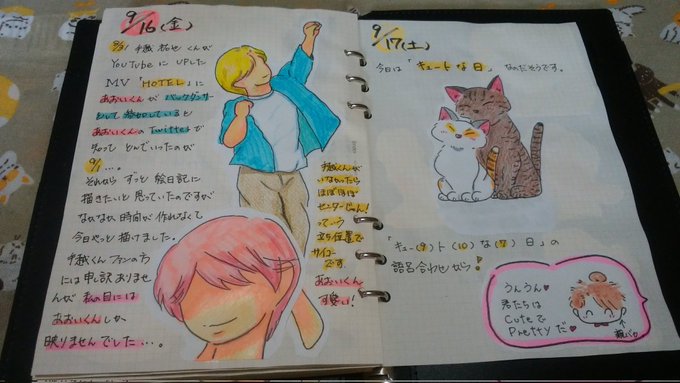 9/16(金)
8/31 手越祐也くんが
YouTubeにUPした
MV「HOTEL」に
あおいくんがバックダンサー
として参加していると
あおいくんのTwitterが
知ってとんでいったのが
9/1…。
それからずっと絵日記に
描きたいと思っていたのですが
なかなか時間が作れなくて
今日やっと描けました。
手越くんファンの方
には申し訳ありませ
んが私の目には
あおいくんしか
映りませんでした…。
手越くんが
いなかったら
ほぼほぼ
センターじゃん!
っていう
立ち位置で
サイコー
です
あおいくん
可愛い!
9/17(土)
今日は「キュートな日」なのだそうです。
「キュー(9)ト(10)な(7)日」の
語呂合わせから!
うんうん♥
君たちは
Cuteで
Prettyだ♥
親バカ